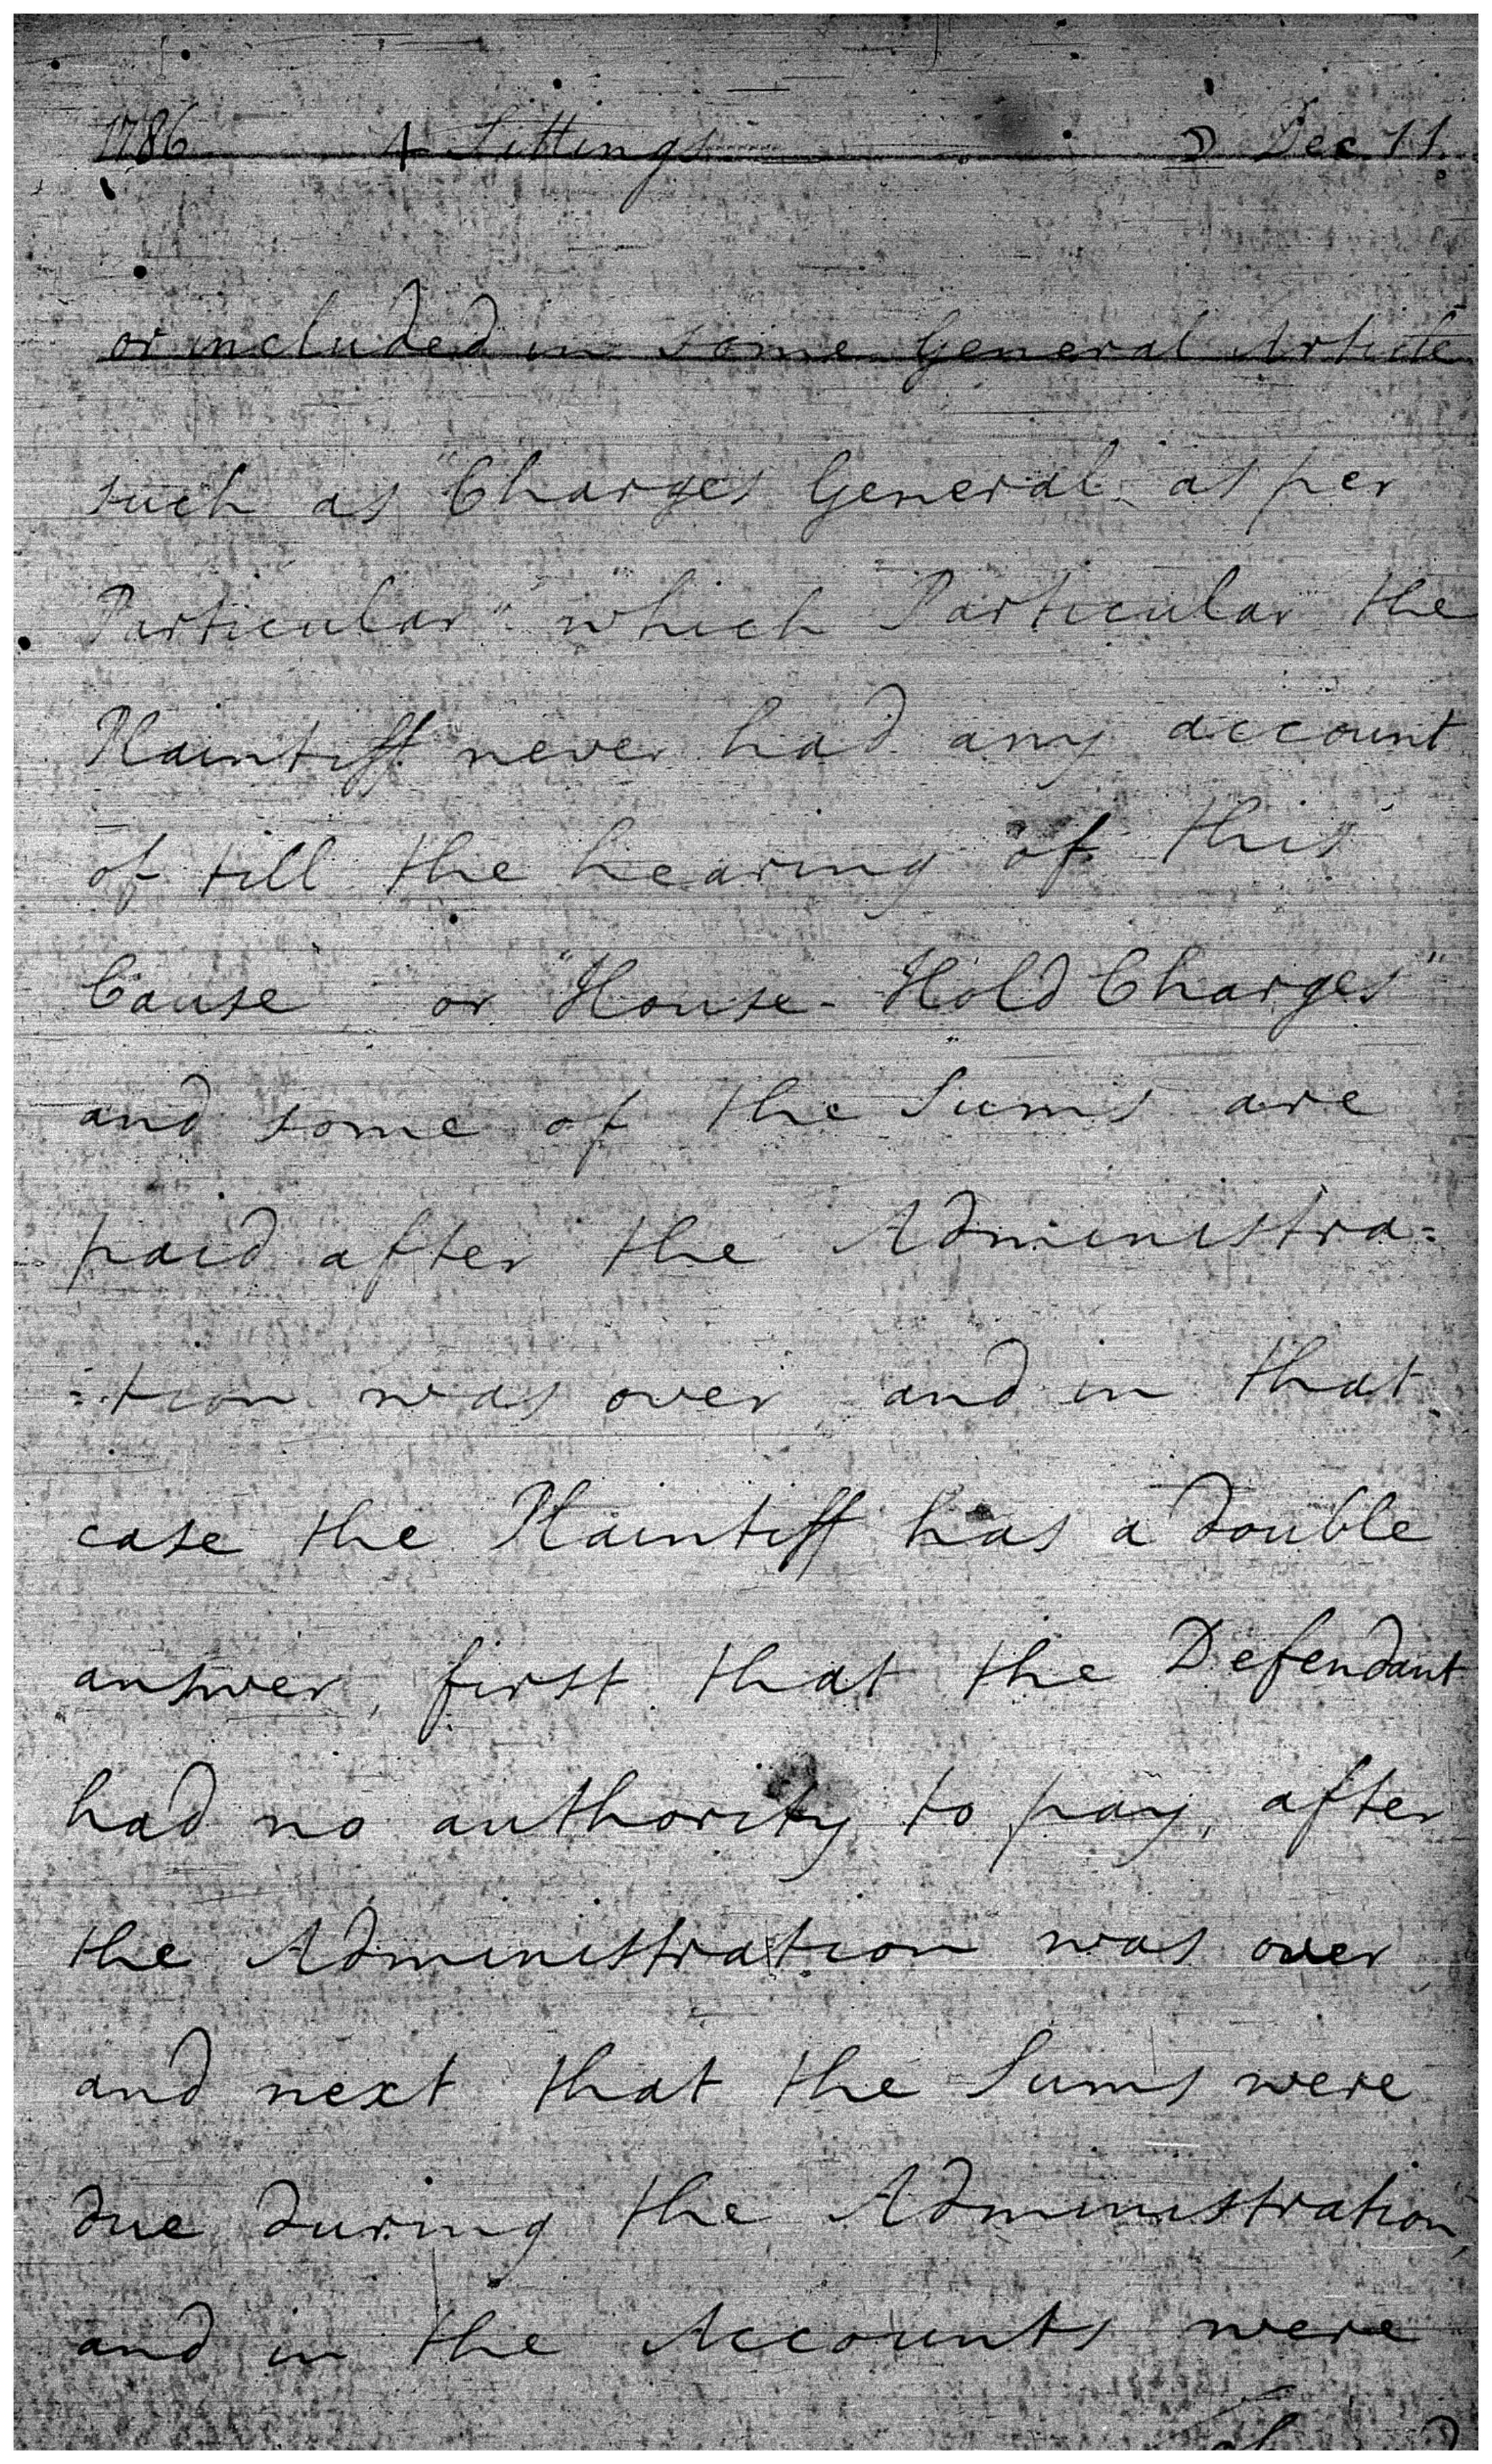 1786 4 Sittings ☽ Dec. 11.
or included in some General Article
such as "Charges General as per
Particular" which Particular the
Plaintiff never had any account
of till the hearing of this
Cause or "House-Hold Charges"
and some of the Sums are
paid after the Administra=
=tion was over and in that
case the Plaintiff has a double
answer, first that the Defendant
had no authority to pay, after
the Administration was over
and next that the Sums were
due during the Administration,
and in the Accounts were